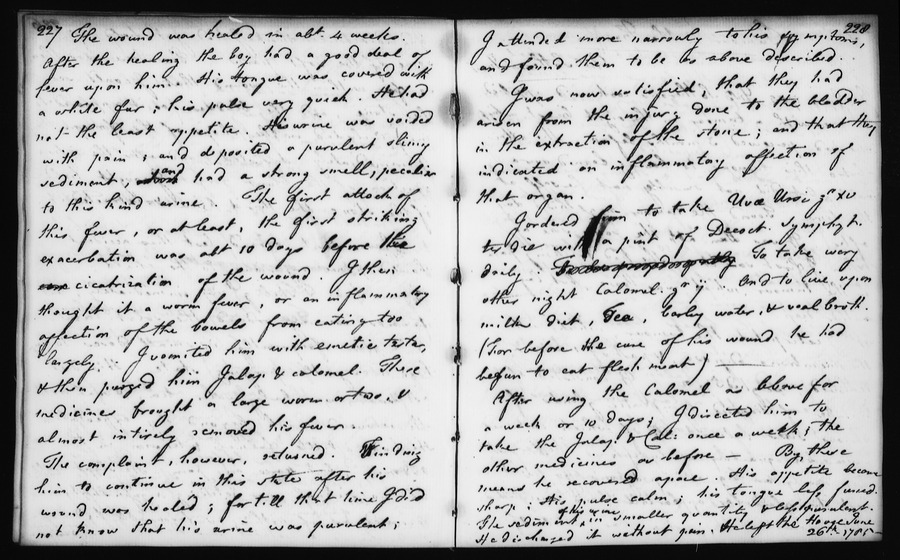 227
The wound was healed in abt. 4 weeks.
After the healing the boy had a good deal of
fever upon him. His tongue was covered with
a white fur; his pulse very quick. He had
not the least appetite. His urine was voided
with pain; and deposited a purulent slimy
sediment, and had a strong smell, peculiar
to this kind urine. The first attack of
this fever, or at least, the first striking
exacerbation was abt 10 days before the
cicatrization of the wound. I then
thought it a worm fever, or an inflammatory
affection of the bowels from eating too
largely. I vomited him with emetic tartr,
& then purged him Jalap & calomel. These
medicines brought a large worm or two, &
almost intirely removed his fever.
The complaint, however, returned. Finding
him to continue in this state after his
wound was healed; for till that time I did
not know that his urine was purulent;
228
I attended more narrowly to his symptoms,
and found them to be as above described.
I was now satisfied, that they had
arisen from the injury done to the bladder
in the extraction of the stone; and that they
indicated an inflammatory affection of
that organ.
I ordered him to take Uvæ Ursi gr xv
ter die with a pint of Decoct. Symphyt.
daily. To take every
other night Calomel. gr ij. And to live upon
milk diet, Tea, barley water, & veal broth.
(For before the cure of his wound he had
begun to eat flesh meat)
After using the Calomel as above for
a week or 10 days; I directed him to
take the Jalap & Cal: once a week; the
other medicines as before — By these
means he recovered apace. His appetite became
sharp; His pulse calm; his tongue less furred.
The sediment of his urine in smaller quantity & less purulent.
He discharged it without pain. He left the House June
26th 1785